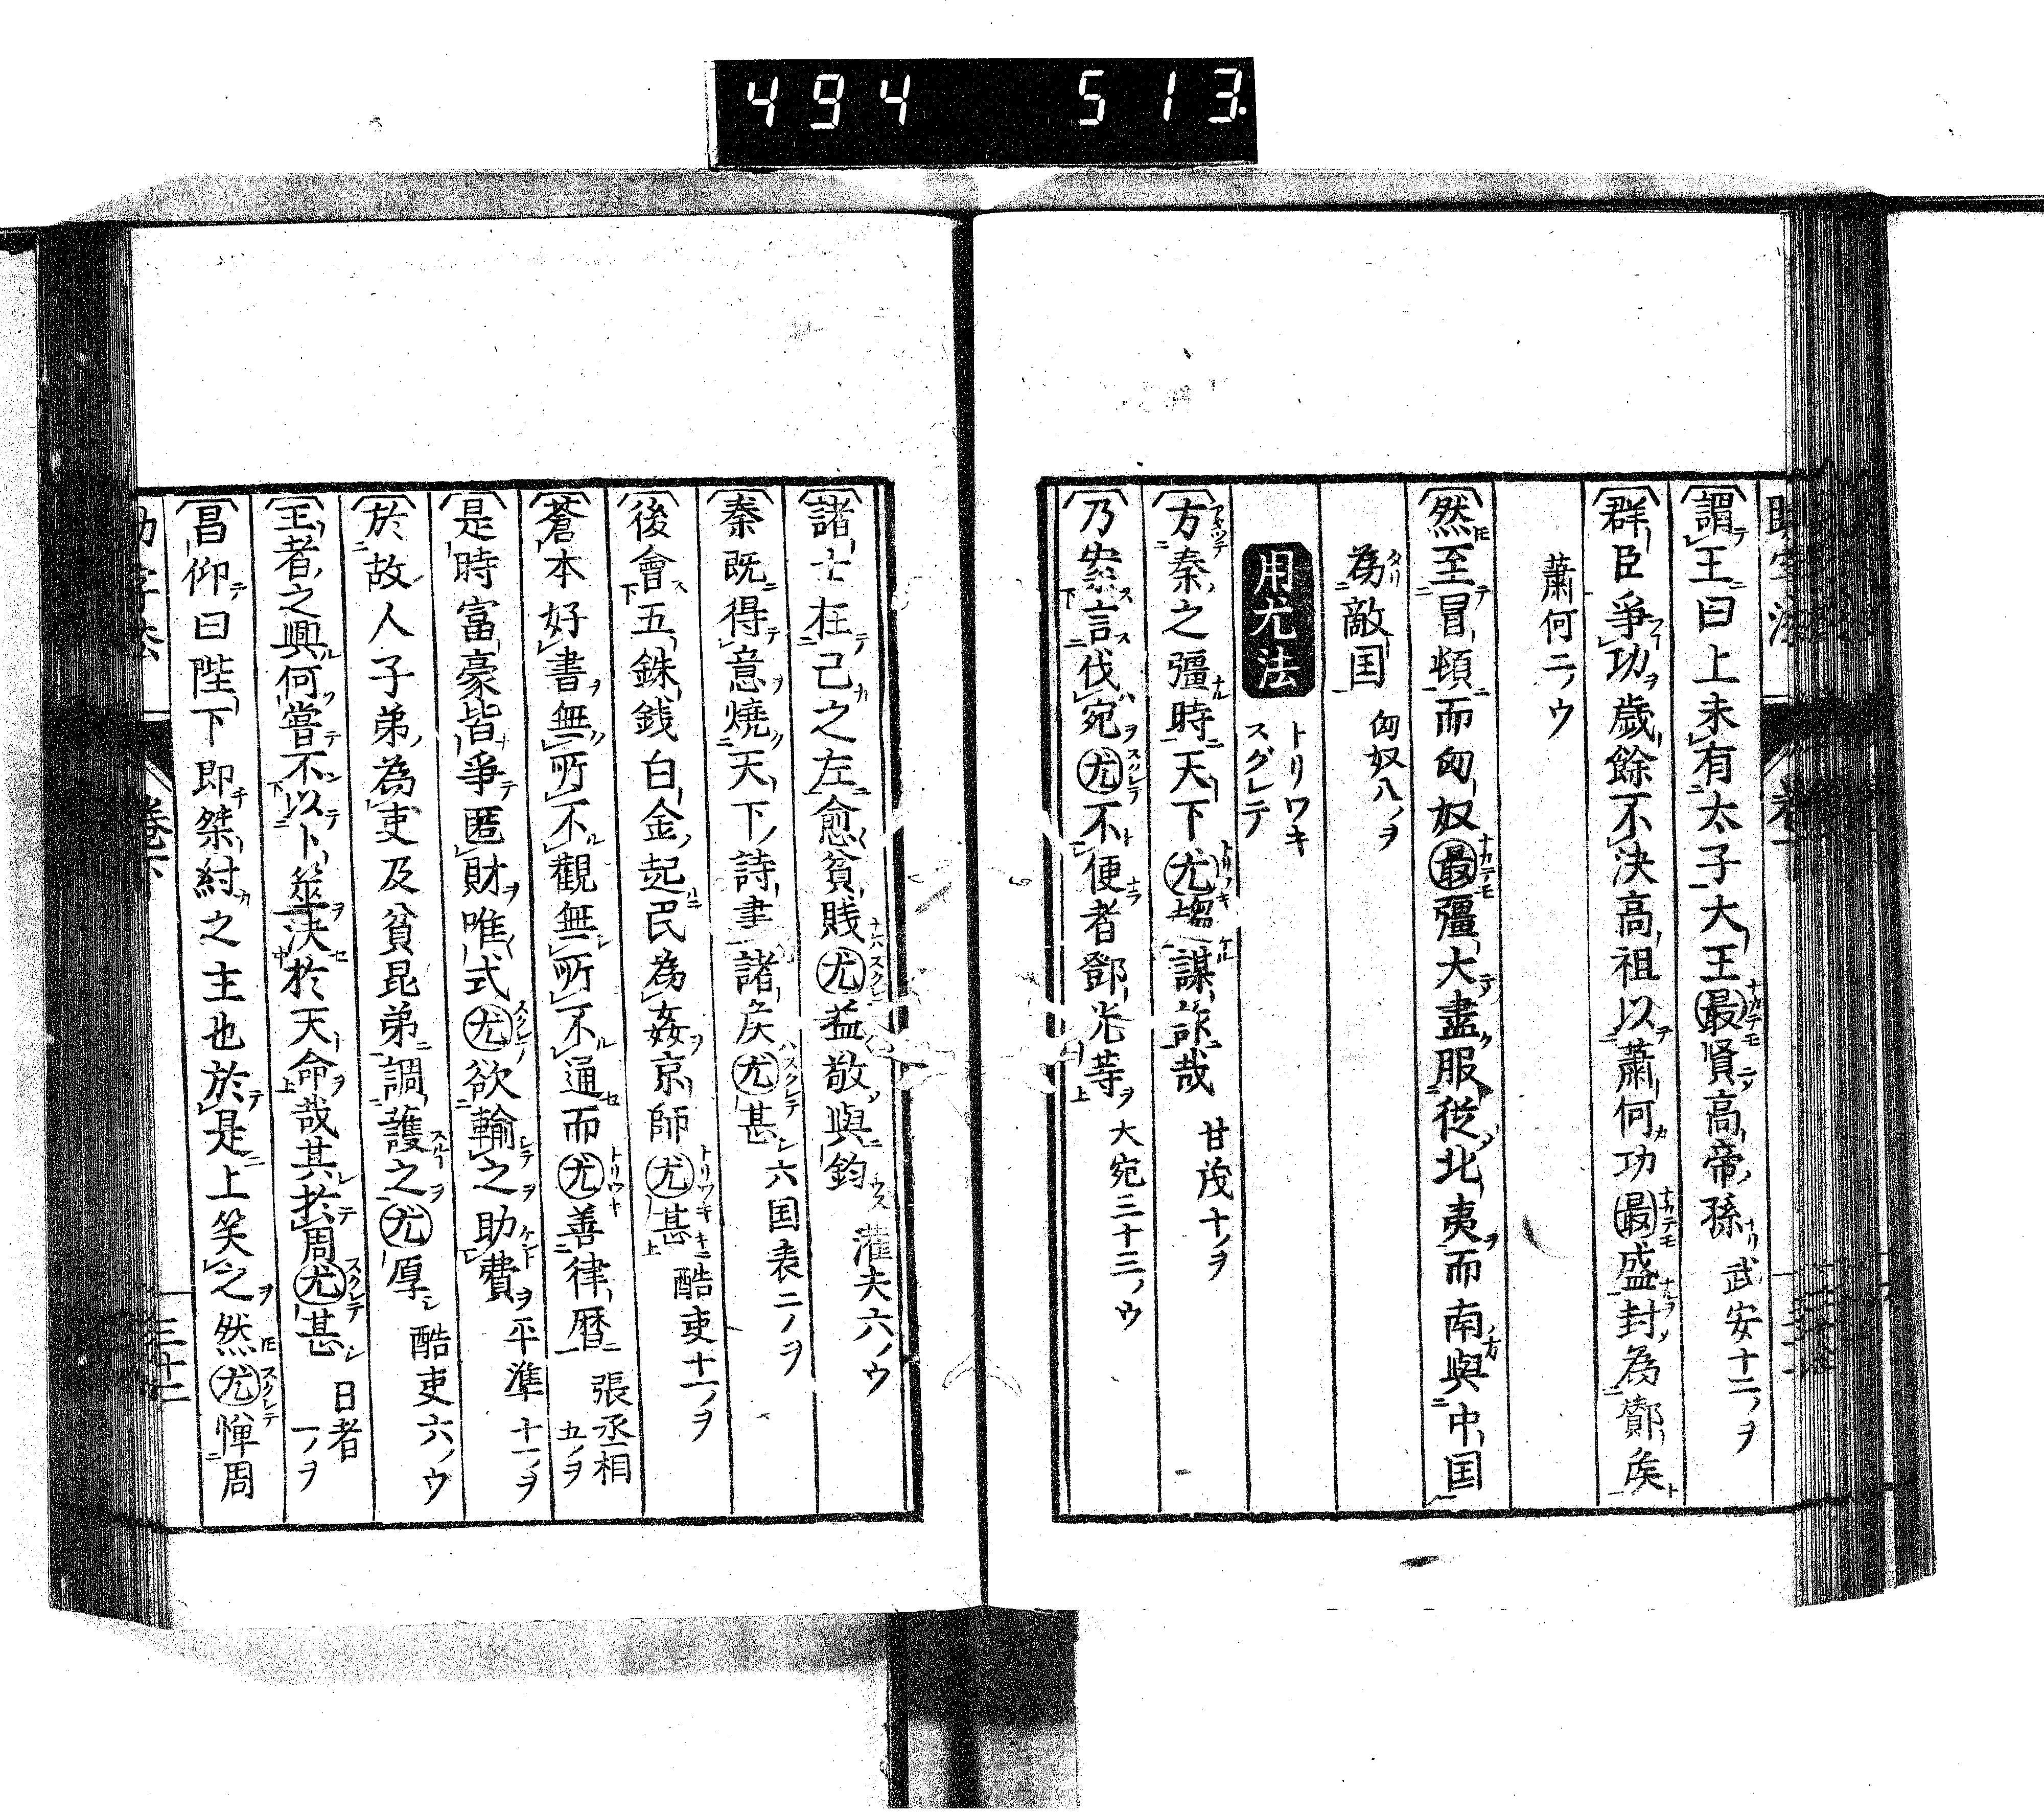 494 513
謂王曰上未有太子大王最賢高帝孫 武安十二ノヲ
群臣爭功歲餘不決高祖以蕭何功最盛封為酇侯
蕭何二ノウ
然至冒頓而匈奴最彊大盡服從北夷而南與中国
為敵国 匈奴八ノヲ
用尤法 トリワキ スグレテ
方秦之彊時天下尤趨謀詐哉 甘茂十ノヲ
乃案言伐宛尤不便者鄧光等 大宛三十三ノウ
諸士在己之左愈貧賤尤益敬與鈞 灌夫六ノウ
秦既得意燒天下詩書諸侯尤甚 六国表二ノヲ
後會五銖銭白金起民為姦京師尤甚 酷吏十一ノヲ
蒼本好書無所不觀無所不通而尤善律暦 張丞相五ノヲ
是時富豪皆爭匿財唯式尤欲輸之助費 平準十一ノヲ
於故人子弟為吏及貧昆弟調護之尤厚 酷吏六ノウ
王者之興何嘗不以卜筮決於天命哉其於周尤甚 日者一ノヲ
昌仰曰陛下即桀紂之主也於是上笑之然尤憚周
卷下 三十二